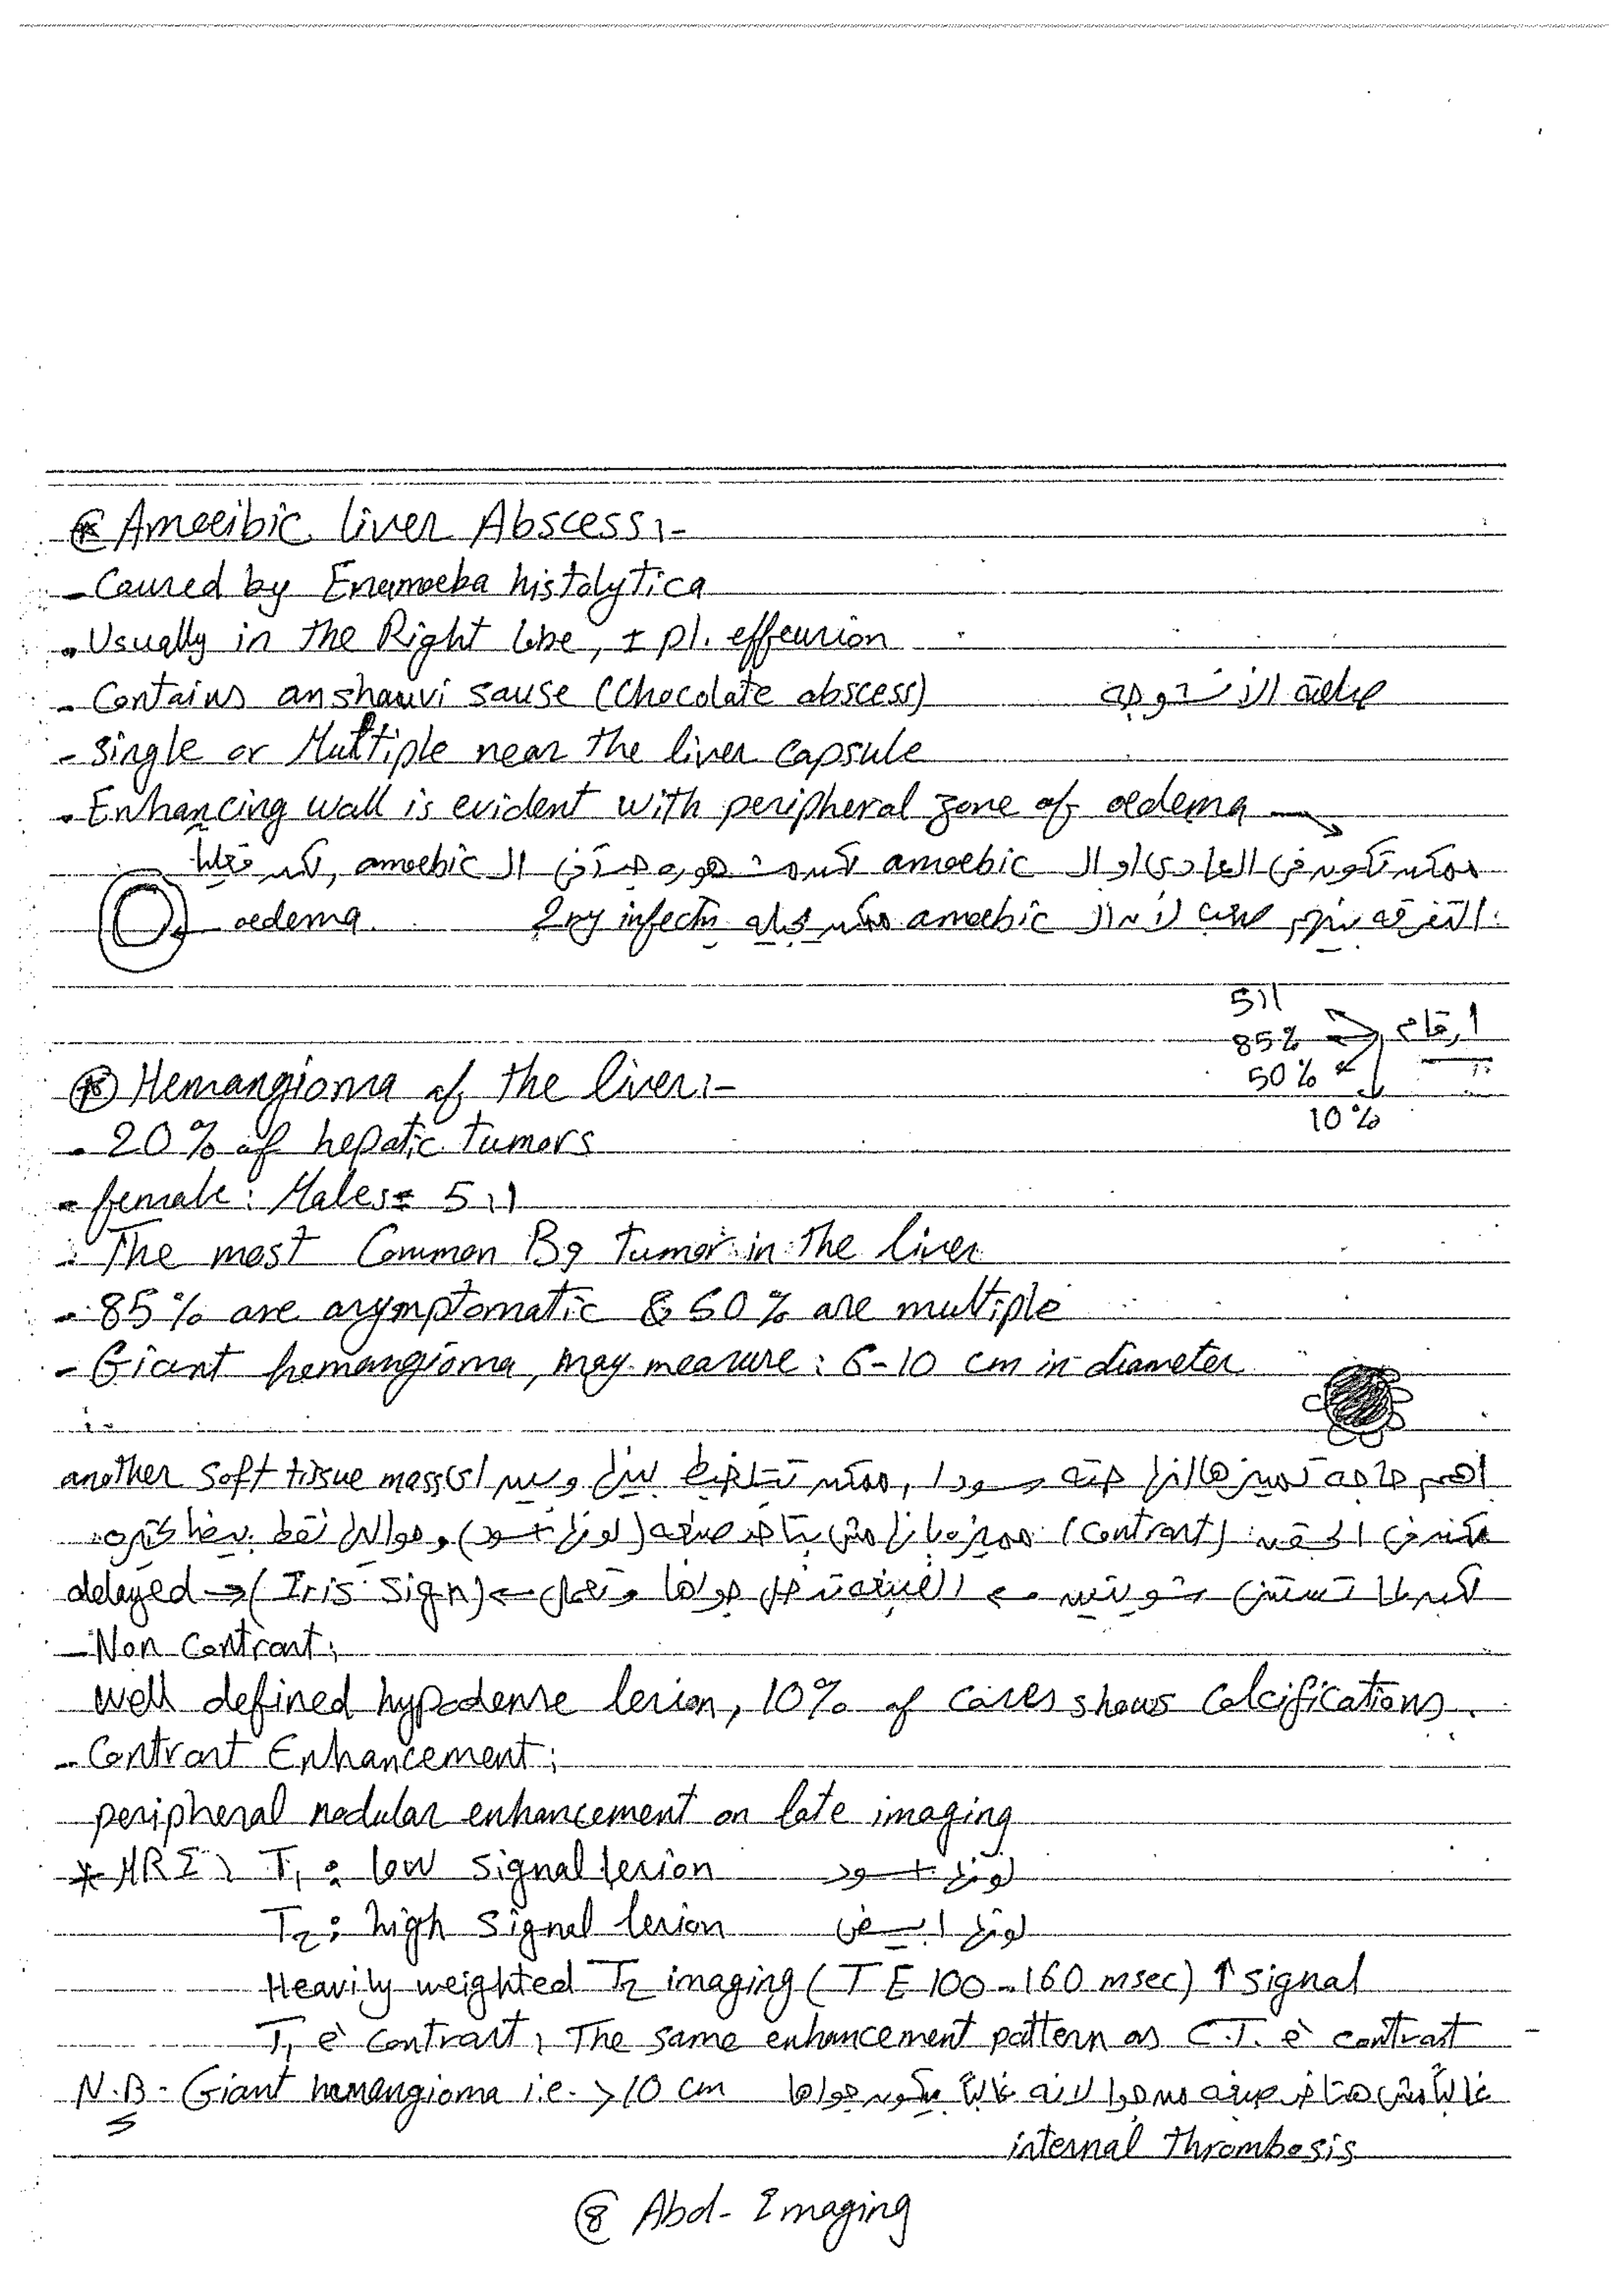 * Ameeibic liver Abscess:-
- Caused by Enamoeba histolytica
- Usually in the Right lobe, ± pl. effeusion
- Contains anshauvi sause (Chocolate abscess) صلصة الانشوجه
- Single or Multiple near the liver capsule
- Enhancing wall is evident with peripheral zone of oedema →
ممكن تكون في العادي او ال amoebic ال amoebic, لكن عمليا
التفرقه بينهم صعب لأن ال amoebic ممكن 2ry infectn
oedema
ارقام
5:1
85%
50%
10%
* Hemangioma of the liver:-
- 20% of hepatic tumors
- female: Males = 5:1
- The most Common Bg tumor in the liver
- 85% are asymptomatic & 50% are multiple
- Giant hemangioma, may measure: 6-10 cm in diameter
اهم حاجه تميزها انها حته سودا, ممكن تتلخبط بينها وبين اى another soft tissue mass(s)
لكن في الحقنه (contrast) مميزه بانها مش بتاخد صبغه (لونها اسود) وحواليها نقط بيضا كتيره
لكن لما تستنى شويتين → الصبغه تدخل جواها وتعمل ← (Iris sign) → delayed
- Non Contrast:
well defined hypodense lesion, 10% of cases shows Calcifications.
- Contrast Enhancement:
peripheral nodular enhancement on late imaging
* MRI: T1: low signal lesion لونها اسود
T2: high signal lesion لونها ابيض
Heavily weighted T2 imaging (TE 100-160 msec) ↑ signal
T1 è contrast: The same enhancement pattern as C.T. è contrast
N.B - Giant hemangioma i.e. > 10 cm غالباً مش هتاخد صبغه من جوا لانه غالباً بيكون جواها
internal thrombosis
8 Abd- Imaging